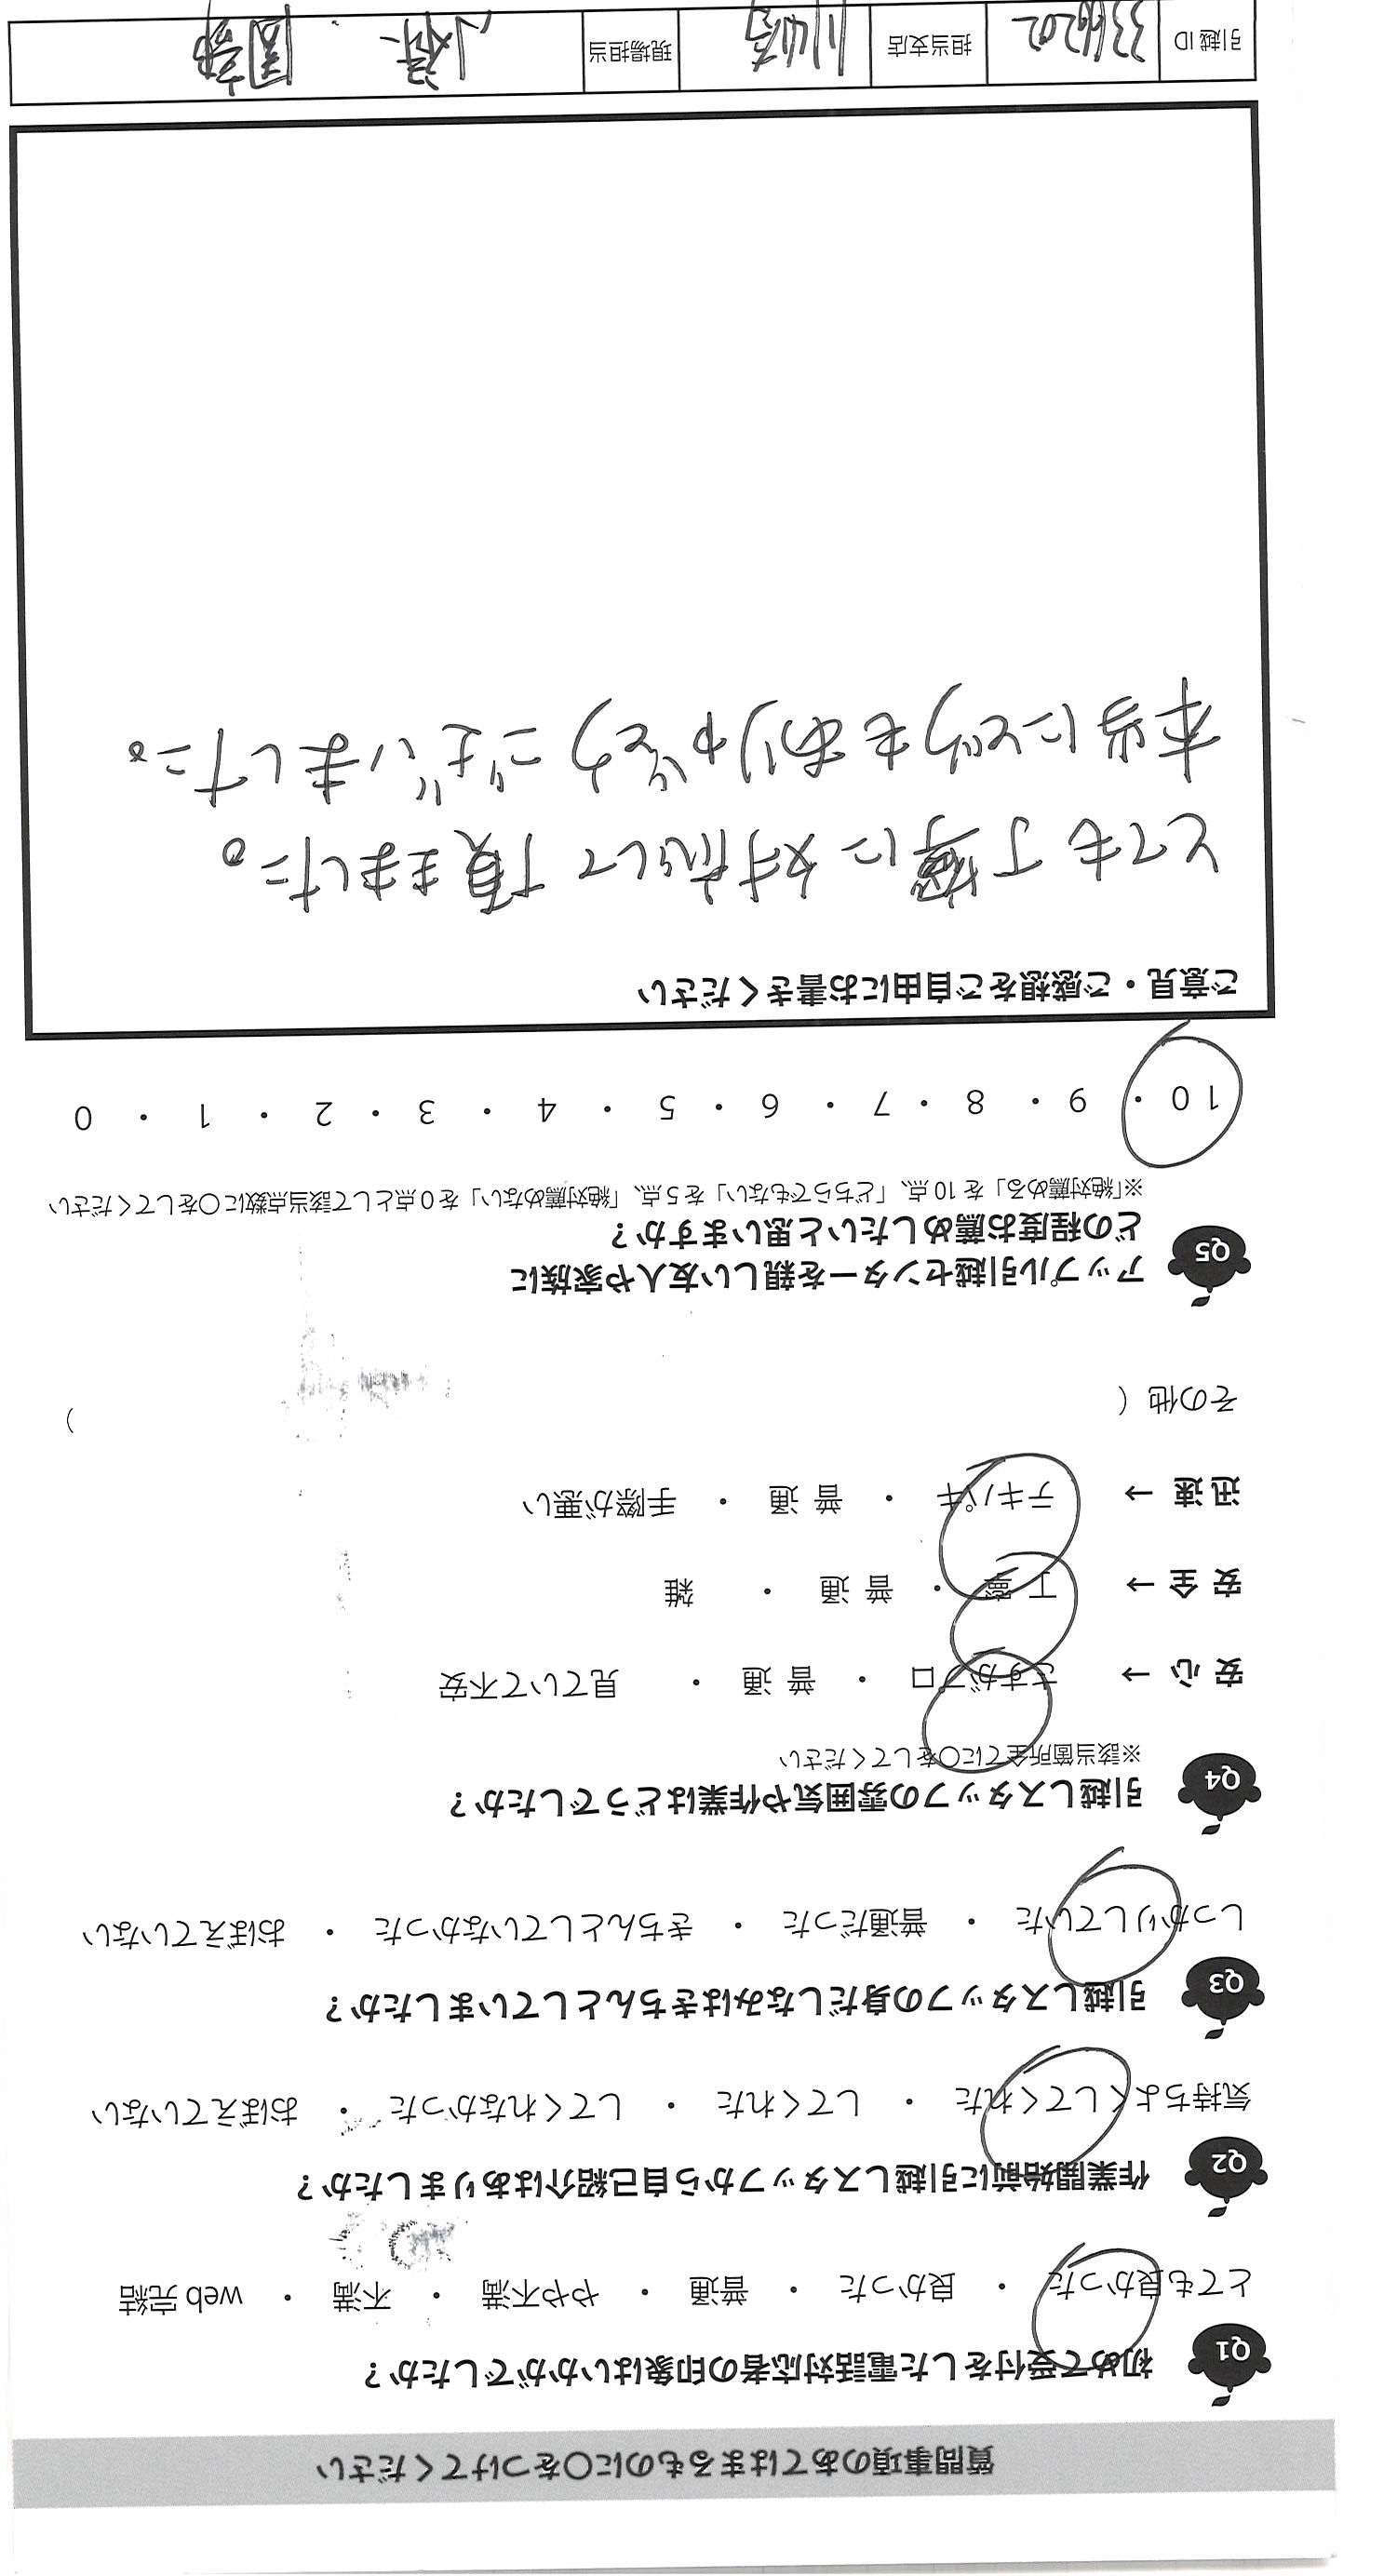 質問事項のあてはまるものに〇をつけてください
Q1 初めて受付をした電話対応者の印象はいかがでしたか？
とても良かった ・ 良かった ・ 普通 ・ やや不満 ・ 不満 ・ web 完結
Q2 作業開始前に引越しスタッフから自己紹介はありましたか？
気持ちよくしてくれた ・ してくれた ・ してくれなかった ・ おぼえていない
Q3 引越しスタッフの身だしなみはきちんとしていましたか？
しっかりしていた ・ 普通だった ・ きちんとしていなかった ・ おぼえていない
Q4 引越しスタッフの雰囲気や作業はどうでしたか？
※該当箇所全てに〇をしてください
安心 → さすがプロ ・ 普通 ・ 見ていて不安
安全 → 丁寧 ・ 普通 ・ 雑
迅速 → テキパキ ・ 普通 ・ 手際が悪い
その他（ ）
Q5 アップル引越センターを親しい友人や家族に
どの程度お薦めしたいと思いますか？
※「絶対薦める」を10点、「どちらでもない」を5点、「絶対薦めない」を0点として該当点数に〇をしてください
10 ・ 9 ・ 8 ・ 7 ・ 6 ・ 5 ・ 4 ・ 3 ・ 2 ・ 1 ・ 0
ご意見・ご感想をご自由にお書きください
とても丁寧に対応して頂きました。
本当にどうもありがとうございました。
引越ID 担当支店 川崎 現場担当 園部